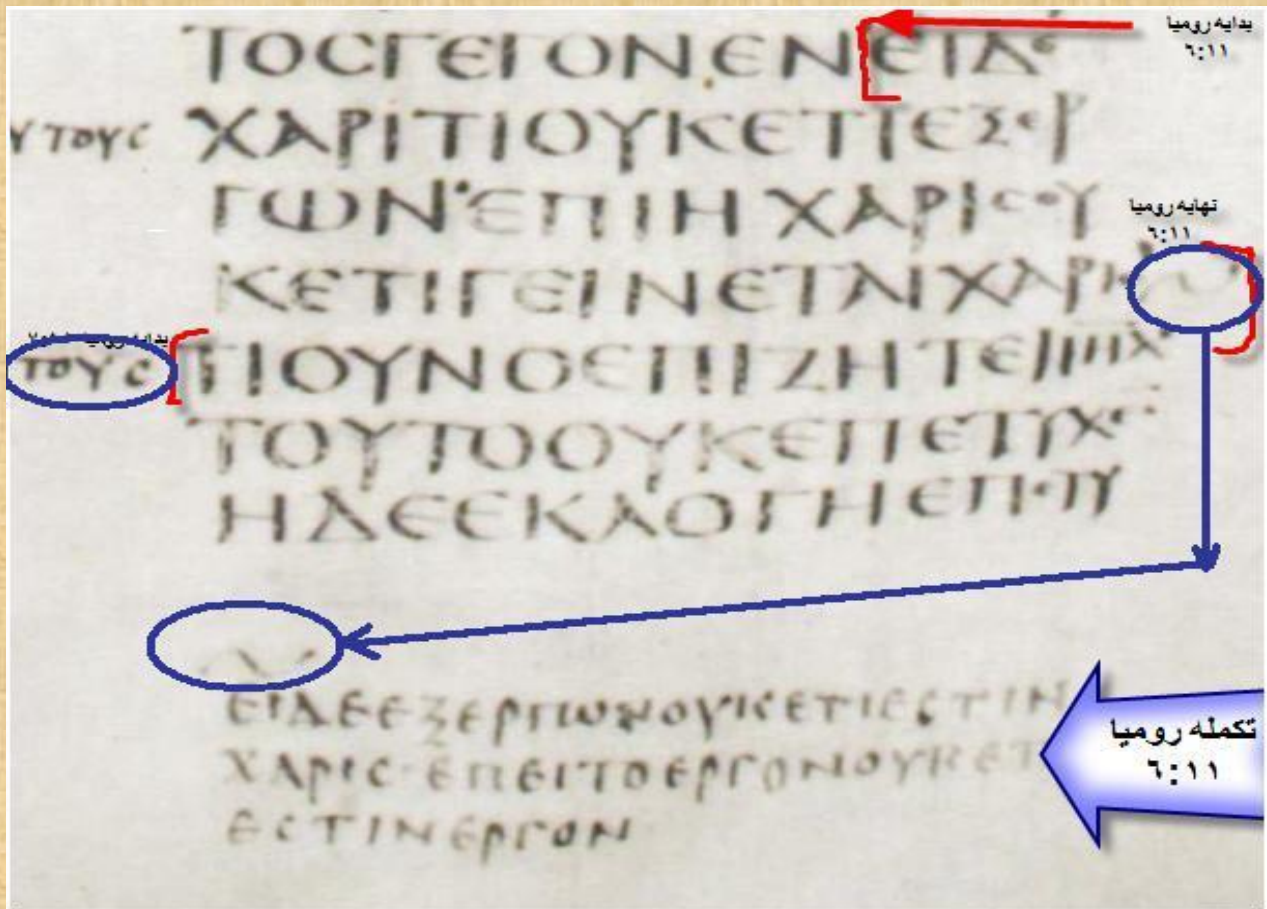 بدايه روميا
٦:١١
ΤΟСΓΕΓΟΝΕΝΕΙΔΕ
ΧΑΡΙΤΙΟΥΚΕΤΙΕΞΕΡ
ΥΤΟΥС
ΓΩΝ·ΕΠΙΗΧΑΡΙСΟΥ
نهايه روميا
٦:١١
ΚΕΤΙΓΕΙΝΕΤΑΙΧΑΡΙС
ΤΟΥС
ΤΙΟΥΝΟΕΠΙΖΗΤΕΙΙΗΛ
ΤΟΥΤΟΟΥΚΕΠΕΤΥΧΕ
ΗΔΕΕΚΛΟΓΗΕΠΕΤΥ
ΕΙΔΕΕΞΕΡΓΩΝΟΥΚΕΤΙΕСΤΙΝ
ΧΑΡΙС·ΕΠΕΙΤΟΕΡΓΟΝΟΥΚΕΤ
ΕСΤΙΝΕΡΓΟΝ
تكمله روميا
٦:١١